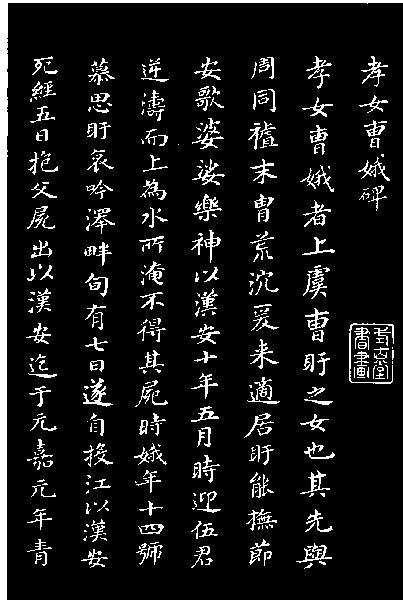 孝女曹娥碑
孝女曹娥者上虞曹盱之女也其先與
周同穡末胄荒沉爰来適居盱能撫節
安歌婆娑樂神以漢安十年五月時迎伍君
逆濤而上為水所淹不得其屍時娥年十四號
慕思盱哀吟澤畔旬有七日遂自投江以漢安
死經五日抱父屍出以漢安迄于元嘉元年青